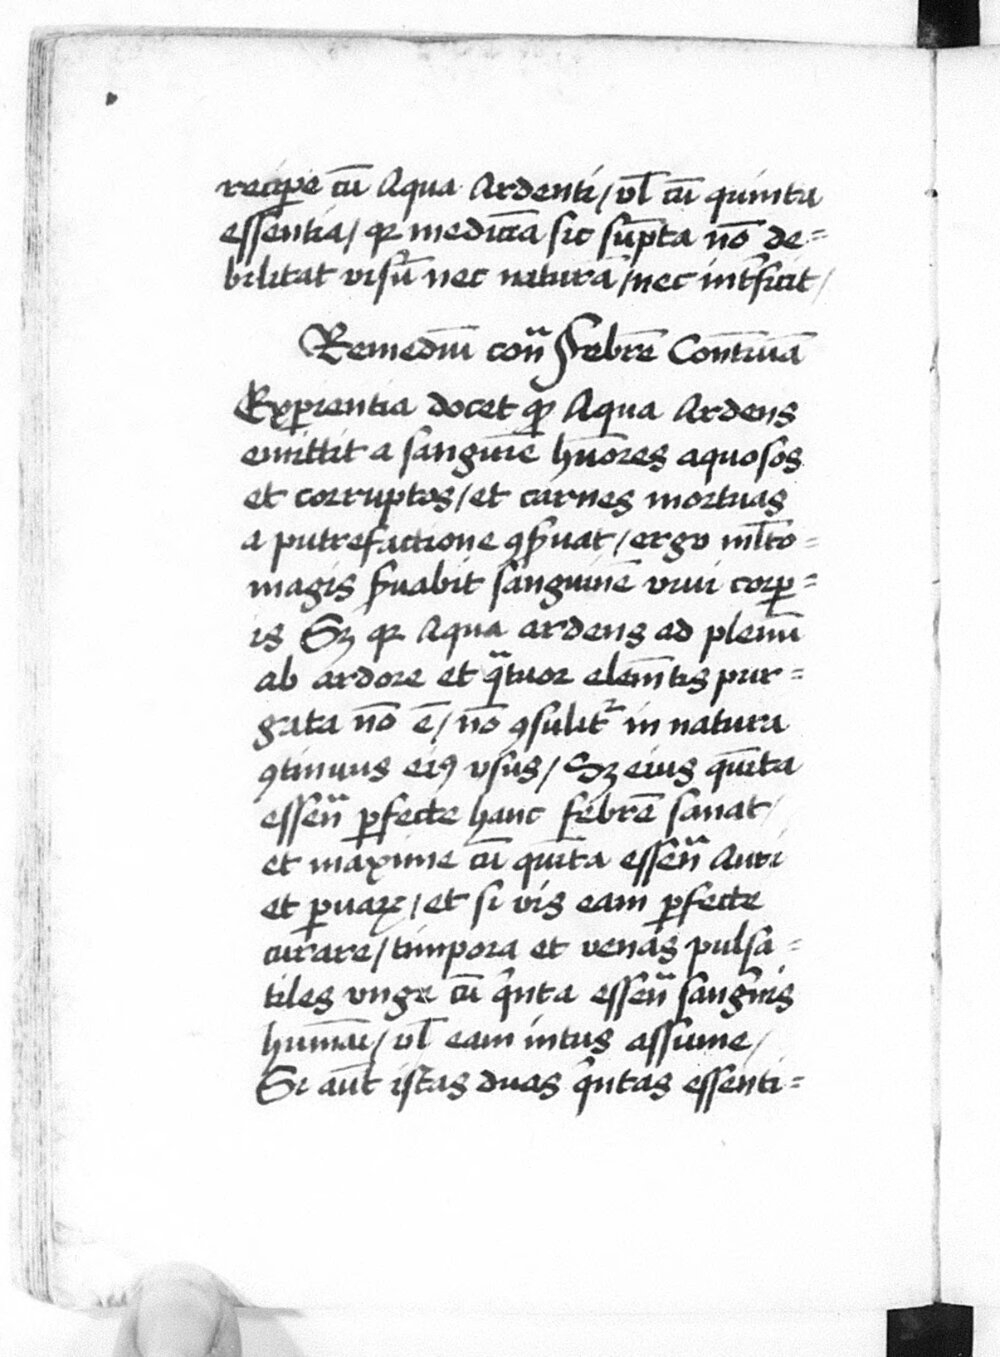 recipe cū Aqua Ardenti / vł cū quinta
essentia / qꝛ medicīa sic sūpta nō de=
bilitat visū nec naturā / nec int̄ficit /
Remediū con̄ Febrē Contīuā
Exꝑientia docet ꝙ Aqua Ardens
emittit a sanguīe hūores aquosos
et corruptos / et carnes mortuas
a putrefactione ꝯß̄uat / ergo mlto=
magis ß̄uabit sanguinē viui corp=
is Sꝫ qꝛ Aqua ardens ad plenū
ab ardore et qͣtuor elem̄tis pur=
gata nō ē / nō ꝯsulit᷑ in natura
ꝯtinuus eiꝯ vsus / Sꝫ eius quīta
essen̄ ꝑfecte hanc febrē sanat /
et maxime cū quīta essen̄ Auri
et ꝑuaꝝ / et si vis eam ꝑfecte
curare / timpora et venas pulsa=
tiles vnge cū qͥnta essen̄ sanguīs
humāi / vł eam intus assume /
Si aūt istas duas qͥntas essenti=